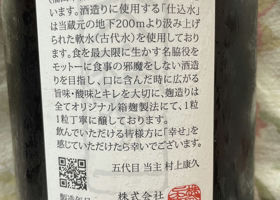 います。酒造りに使用する「仕込水」
は当蔵元の地下200mより汲み上げ
られた軟水（古代水）を使用しており
ます。食を最大限に生かす名脇役を
モットーに食事の邪魔をしない酒造
りを目指し、口に含んだ時に広がる
旨味・酸味とキレを大切に、麹造りは
全てオリジナル箱麹製法にて、1粒
1粒丁寧に醸しております。
飲んでいただける皆様方に「幸せ」を
感じていただけたら幸いでございます。
五代目 当主 村上康久
株式会社
製造年月